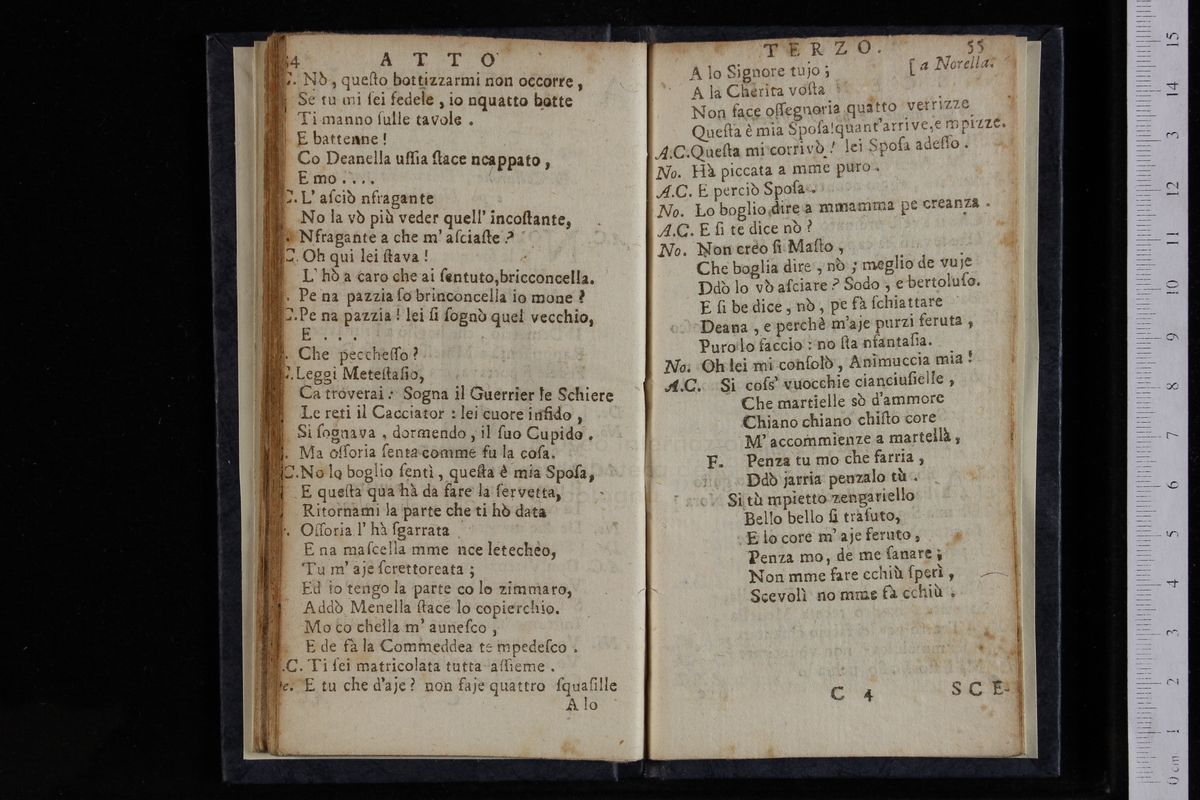 54 ATTO
C. Nò, queſto bottizzarmi non occorre,
Se tu mi ſei fedele, io nquatto botte
Ti manno ſulle tavole.
E battenne!
Co Deanella uſſia ſtace ncappato,
E mo....
C. L' aſciò nfragante
No la vò più veder quell' incoſtante,
. Nfragante a che m' aſciaſte?
C. Oh qui lei ſtava!
L' hò a caro che ai ſentuto, bricconcella.
. Pe na pazzia ſo brinconcella io mone?
C. Pe na pazzia! lei ſi ſognò quel vecchio,
E ...
. Che peccheſſo?
C. Leggi Meteſtaſio,
Ca troverai: Sogna il Guerrier le Schiere
Le reti il Cacciator: lei cuore infido,
Si ſognava, dormendo, il ſuo Cupido.
. Ma oſſoria ſenta comme fu la coſa.
C. No lo boglio ſentì, queſta è mia Spoſa,
E queſta qua hà da fare la ſervetta,
Ritornami la parte che ti hò data
. Oſſoria l' hà ſgarrata
E na maſcella mme nce letecheo,
Tu m' aje ſcrettoreata;
Ed io tengo la parte co lo zimmaro,
Addò Menella ſtace lo copierchio.
Mo co chella m' auneſco,
E de fà la Commeddea te mpedeſco.
.C. Ti ſei matricolata tutta aſſieme.
e. E tu che d'aje? non faje quattro ſquaſille
A lo
TERZO. 55
A lo Signore tujo; [a Norella.
A la Cherita voſta
Non face oſſegnoria quatto verrizze
Queſta è mia Spoſa! quant' arrive, e mpizze.
A.C. Queſta mi corrivò! lei Spoſa adeſſo.
No. Hà piccata a mme puro.
A.C. E perciò Spoſa.
No. Lo boglio dire a mmamma pe creanza.
A.C. E ſi te dice nò?
No. Non creo ſi Maſto,
Che boglia dire, nò; meglio de vuje
Ddò lo vò aſciare? Sodo, e bertoluſo.
E ſi be dice, nò, pe fà ſchiattare
Deana, e perchè m'aje purzi feruta,
Puro lo faccio: no ſta nfantaſia.
No. Oh lei mi conſolò, Animuccia mia!
A.C. Si coſs' vuocchie cianciuſielle,
Che martielle sò d'ammore
Chiano chiano chiſto core
M' accommienze a martellà,
F. Penza tu mo che farria,
Ddò jarria penzalo tù.
Si tù mpietto zengariello
Bello bello ſi traſuto,
E lo core m' aje feruto,
Penza mo, de me ſanare;
Non mme fare cchiù ſperì,
Scevolì no mme fà cchiù.
C 4 SCE-
15
14
13
12
11
10
9
8
7
6
5
4
3
2
1
0 cm